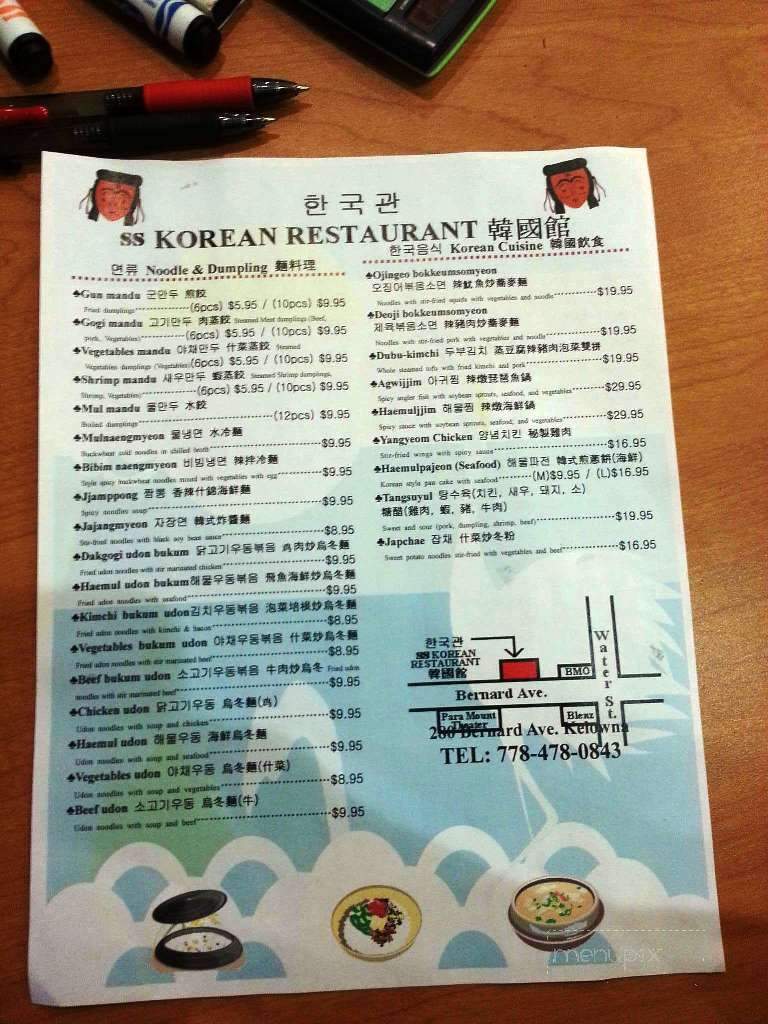 한국관
ss KOREAN RESTAURANT 韓國館
면류 Noodle & Dumpling 麵料理
♣Gun mandu 군만두 煎餃
Fried dumplings (6pcs) $5.95 / (10pcs) $9.95
♣Gogi mandu 고기만두 肉蒸餃 Steamed Meat dumplings (Beef,
pork, Vegetables) (6pcs) $5.95 / (10pcs) $9.95
♣Vegetables mandu 야채만두 什菜蒸餃 Steamed
Vegetables dumplings (Vegetables) (6pcs) $5.95 / (10pcs) $9.95
♣Shrimp mandu 새우만두 蝦蒸餃 Steamed Shrimp dumplings,
Shrimp, Vegetables) (6pcs) $5.95 / (10pcs) $9.95
♣Mul mandu 물만두 水餃
Boiled dumplings (12pcs) $9.95
♣Mulnaengmyeon 물냉면 水冷麵
Buckwheat cold noodles in chilled broth $9.95
♣Bibim naengmyeon 비빔냉면 辣拌冷麵
Style spicy buckwheat noodles mixed with vegetables with egg $9.95
♣Jjamppong 짬뽕 香辣什錦海鮮麵
Spicy noodles soup $9.95
♣Jajangmyeon 자장면 韓式炸醬麵
Stir-fried noodles with black soy bean sauce $8.95
♣Dakgogi udon bukum 닭고기우동볶음 鸡肉炒烏冬麵
Fried udon noodles with stir marinated chicken $9.95
♣Haemul udon bukum 해물우동볶음 飛魚海鮮炒烏冬麵
Fried udon noodles with seafood $9.95
♣Kimchi bukum udon 김치우동볶음 泡菜培根炒烏冬麵
Fried udon noodles with kimchi & bacon $8.95
♣Vegetables bukum udon 야채우동볶음 什菜炒烏冬麵
Fried udon noodles with stir marinated beef $8.95
♣Beef bukum udon 소고기우동볶음 牛肉炒烏冬 Fried udon
noodles with stir marinated beef $9.95
♣Chicken udon 닭고기우동 烏冬麵(鸡)
Udon noodles with soup and chicken $9.95
♣Haemul udon 해물우동 海鮮烏冬麵
Udon noodles with soup and seafood $9.95
♣Vegetables udon 야채우동 烏冬麵(什菜)
Udon noodles with soup and vegetables $8.95
♣Beef udon 소고기우동 烏冬麵(牛)
Udon noodles with soup and beef $9.95
한국음식 Korean Cuisine 韓國飲食
♣Ojingeo bokkeumsomyeon
오징어볶음소면 辣魷魚炒蕎麥麵
Noodles with stir-fried squids with vegetables and noodle $19.95
♣Deoji bokkeumsomyeon
제육볶음소면 辣豬肉炒蕎麥麵
Noodles with stir-fried pork with vegetables and noodle $19.95
♣Dubu-kimchi 두부김치 蒸豆腐辣豬肉泡菜雙拼
Whole steamed tofu with fried kimchi and pork $19.95
♣Agwijjim 아귀찜 辣燉琵琶魚鍋
Spicy angler fish with soybean sprouts, seafood, and vegetables $29.95
♣Haemuljjim 해물찜 辣燉海鮮鍋
Spicy sauce with soybean sprouts, seafood, and vegetables $29.95
♣Yangyeom Chicken 양념치킨 秘製雞肉
Stir-fried wings with spicy sauce $16.95
♣Haemulpajeon (Seafood) 해물파전 韓式煎蔥餅(海鮮)
Korean style pan cake with seafood (M)$9.95 / (L)$16.95
♣Tangsuyul 탕수육(치킨, 새우, 돼지, 소)
糖醋(雞肉, 蝦, 豬, 牛肉)
Sweet and sour (pork, dumpling, shrimp, beef) $19.95
♣Japchae 잡채 什菜炒冬粉
Sweet potato noodles stir-fried with vegetables and beef $16.95
한국관
SS KOREAN
RESTAURANT
韓國館
BMO
Water St.
Bernard Ave.
Para Mount
Theater
Blenz
280 Bernard Ave. Kelowna
TEL: 778-478-0843
menupix